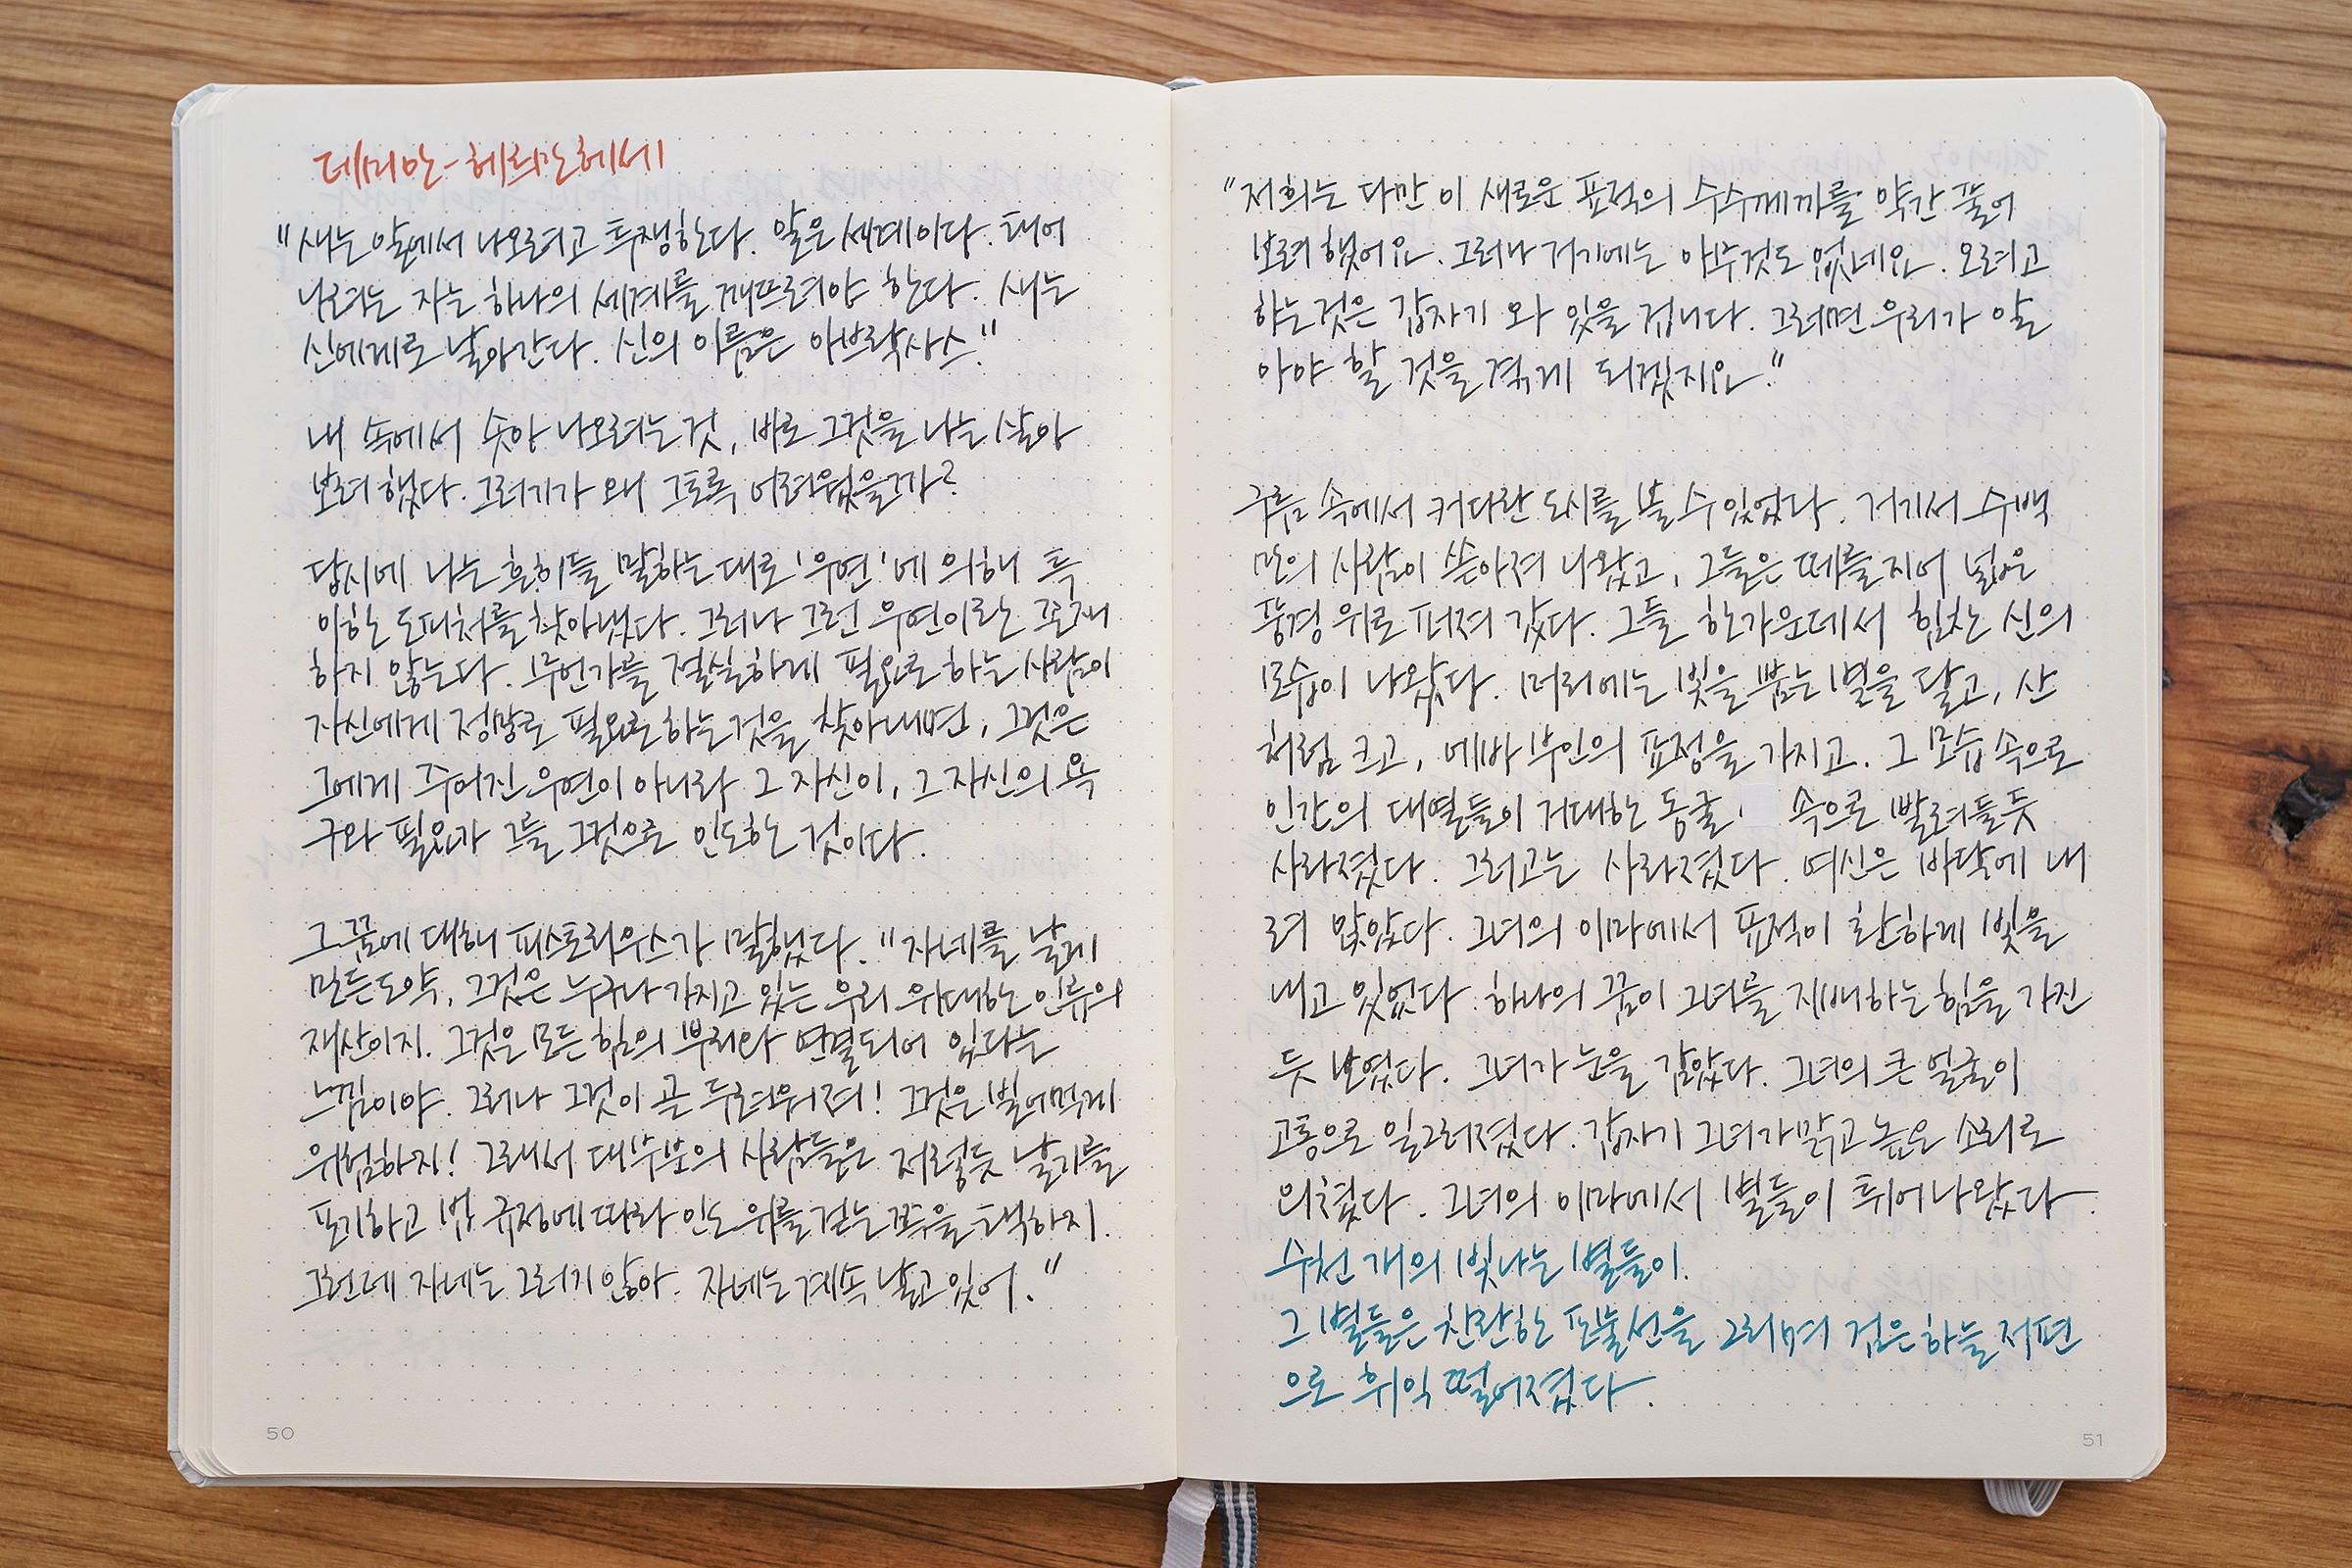 데미안 - 헤르만 헤세
"새는 알에서 나오려고 투쟁한다. 알은 세계이다. 태어
나려는 자는 하나의 세계를 깨뜨려야 한다. 새는
신에게로 날아간다. 신의 이름은 아브락사스."
내 속에서 솟아 나오려는 것, 바로 그것을 나는 살아
보려 했다. 그러기가 왜 그토록 어려웠을까?
당시에 나는 흔히들 말하는 대로 '우연'에 의해 특
이한 도피처를 찾아냈다. 그러나 그런 우연이란 존재
하지 않는다. 무언가를 절실하게 필요로 하는 사람이
자신에게 정말로 필요로 하는 것을 찾아내면, 그것은
그에게 주어진 우연이 아니라 그 자신이, 그 자신의 욕
구와 필요가 그를 그것으로 인도한 것이다.
그 꿈에 대해 피스토리우스가 말했다. "자네를 날게
만든 도약, 그것은 누구나 가지고 있는 우리 위대한 인류의
재산이지. 그것은 모든 힘의 뿌리와 연결되어 있다는
느낌이야. 그러나 그것이 곧 두려워져! 그것은 빌어먹게
위험하지! 그래서 대부분의 사람들은 저렇듯 날기를
포기하고 법 규정에 따라 인도 위를 걷는 쪽을 택하지.
그런데 자네는 그러지 않아. 자네는 계속 날고 있어."
"저희는 다만 이 새로운 표적의 수수께끼를 약간 풀어
보려 했어요. 그러나 거기에는 아무것도 없네요. 오려고
하는 것은 갑자기 와 있을 겁니다. 그러면 우리가 알
아야 할 것을 겪게 되겠지요."
구름 속에서 커다란 도시를 볼 수 있었다. 거기서 수백
만의 사람이 쏟아져 나왔고, 그들은 떼를 지어 넓은
풍경 위로 퍼져 갔다. 그들 한가운데에서 힘찬 신의
모습이 나왔다. 머리에는 빛을 뿜는 별을 달고, 산
처럼 크고, 에바 부인의 표정을 가지고. 그 모습 속으로
인간의 대열들이 거대한 동굴 속으로 빨려들듯
사라졌다. 그러고는 사라졌다. 여신은 바닥에 내
려 앉았다. 그녀의 이마에서 표적이 환하게 빛을
내고 있었다. 하나의 꿈이 그녀를 지배하는 힘을 가진
듯 보였다. 그녀가 눈을 감았다. 그녀의 큰 얼굴이
고통으로 일그러졌다. 갑자기 그녀가 맑고 높은 소리로
외쳤다. 그녀의 이마에서 별들이 튀어나왔다.
수천 개의 빛나는 별들이.
그 별들은 찬란한 포물선을 그리며 검은 하늘 저편
으로 휘익 떨어졌다.
50
51